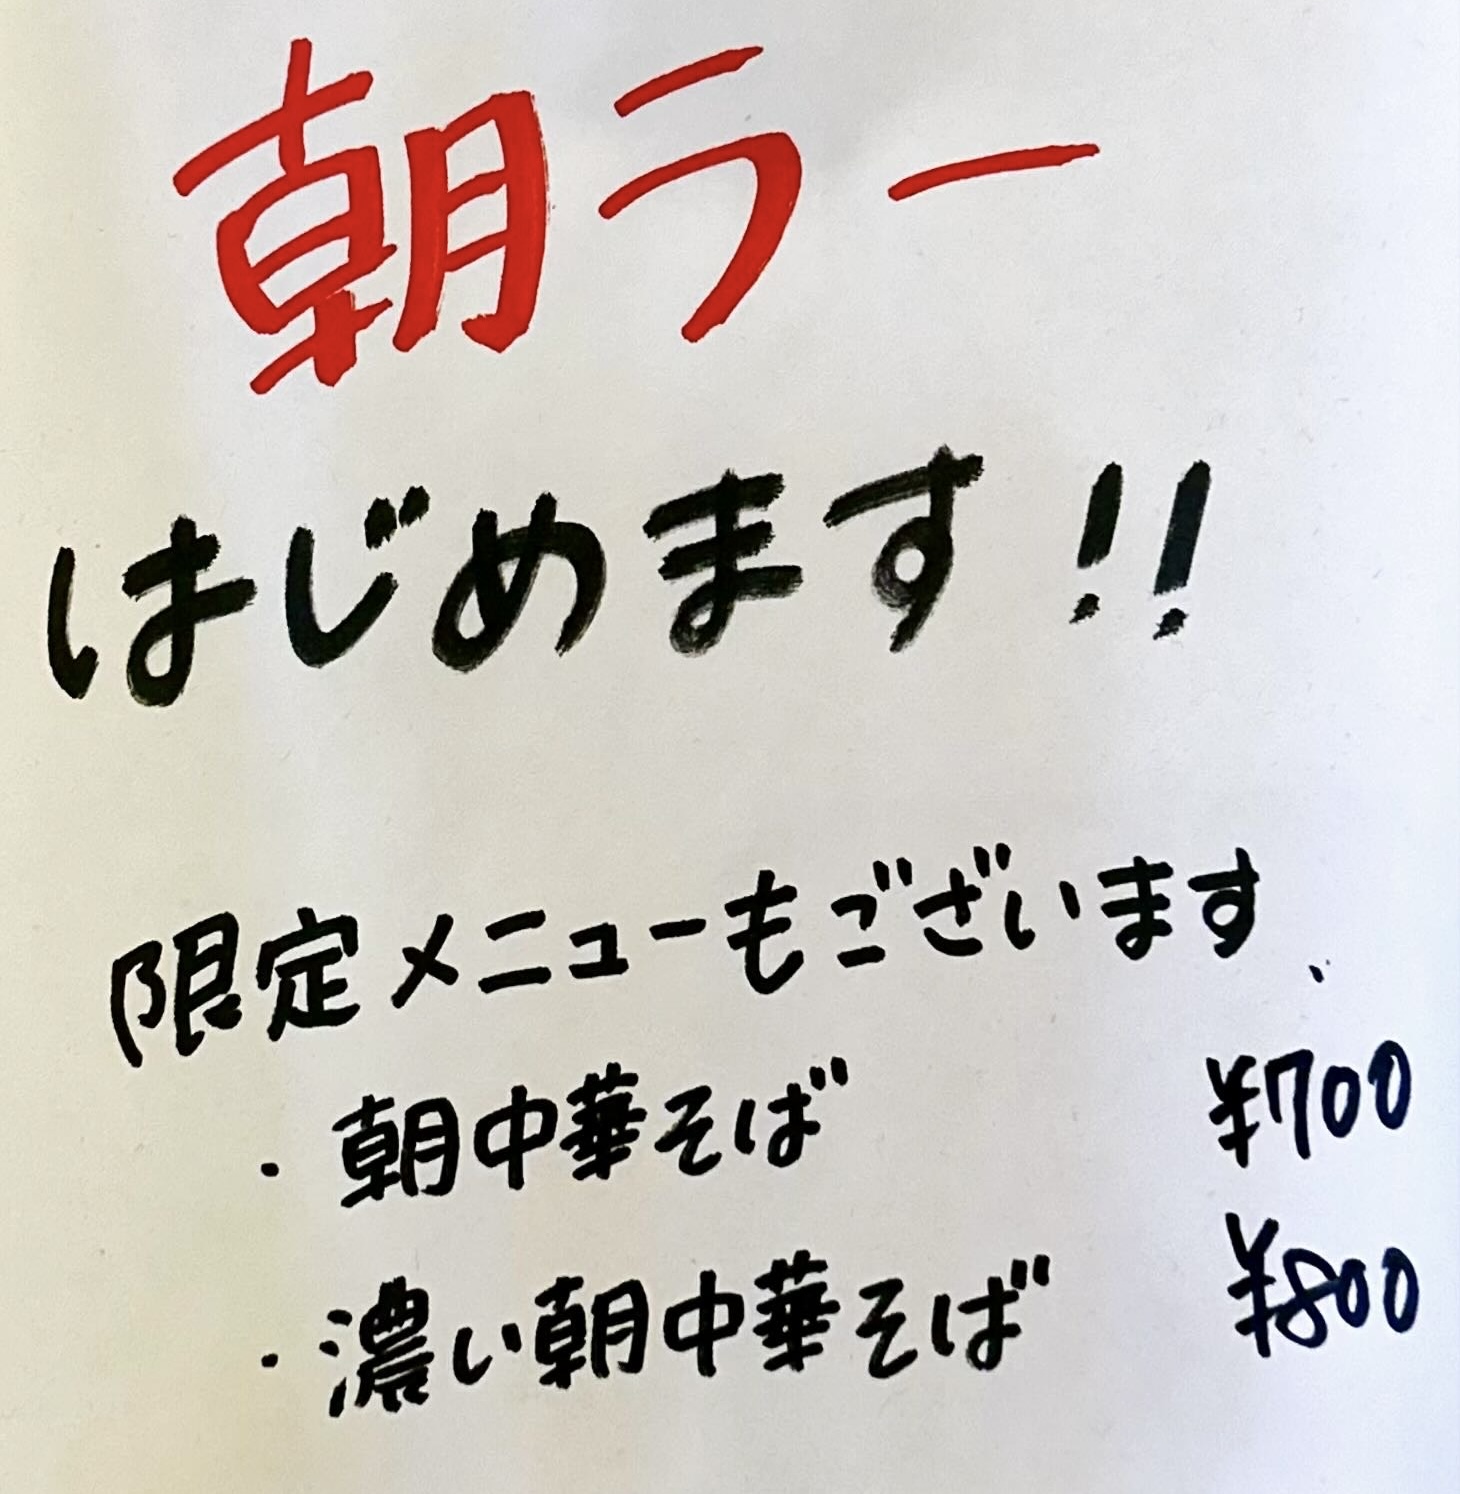 朝ラー
はじめます!!
限定メニューもございます
・朝中華そば ¥700
・濃い朝中華そば ¥800